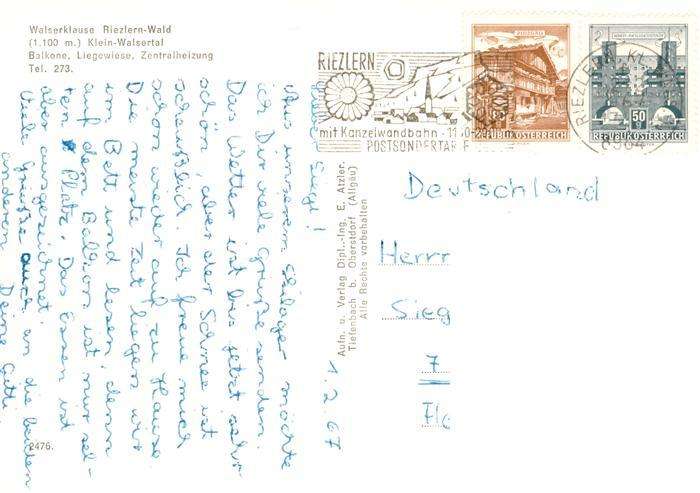 Walserklause Riezlern-Wald
(1.100 m.) Klein-Walsertal
Balkone, Liegewiese, Zentralheizung
Tel. 273.
RIEZLERN
mit Kanzelwandbahn
POSTSONDERTARIF
REPUBLIK ÖSTERREICH
50
REPUBLIK ÖSTERREICH
RIEZLERN
1.2.67
Sieg!
Aus unserem Skilager möchte
ich Dir viele Grüße senden.
Das Wetter ist bis jetzt sehr
schön, aber der Schnee ist
scheußlich. Ich freue mich
schon wieder auf zu Hause
Die meiste Zeit liegen wir
im Bett und lesen, denn
auf dem Balkon ist nur sel-
ten Platz. Das Essen ist
aber ausgezeichnet.
Viele Grüße auch an die beiden
anderen
Deine
Aufn. u. Verlag Dipl.-Ing. E. Atzler.
Tiefenbach b. Oberstdorf (Allgäu)
Alle Rechte vorbehalten
Deutschland
Herrn
Sieg
7
2476.